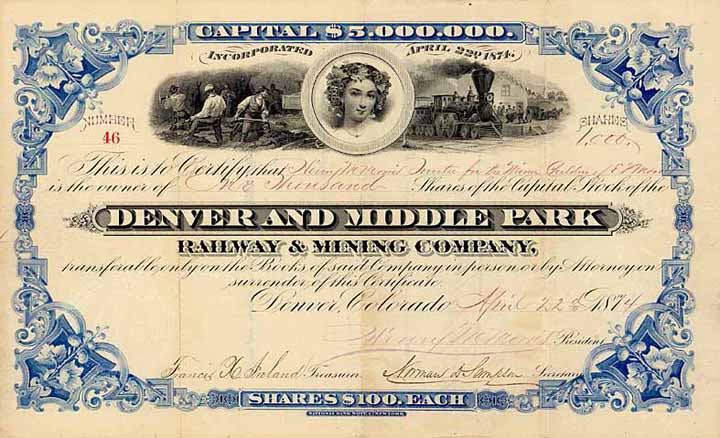 CAPITAL $5,000,000.
INCORPORATED APRIL 22D 1874.
NUMBER
46
SHARES
1,000
This is to Certify that Henry Trustee for the Minor Children of
is the owner of One Thousand Shares of the Capital Stock of the
DENVER AND MIDDLE PARK
RAILWAY & MINING COMPANY,
transferable only on the Books of said Company in person or by Attorney on
surrender of this Certificate.
Denver, Colorado April 22d 1874
Henry President
Francis Treasurer Norman D Secretary
SHARES $100. EACH
NATIONAL BANK NOTE CO. NEW YORK